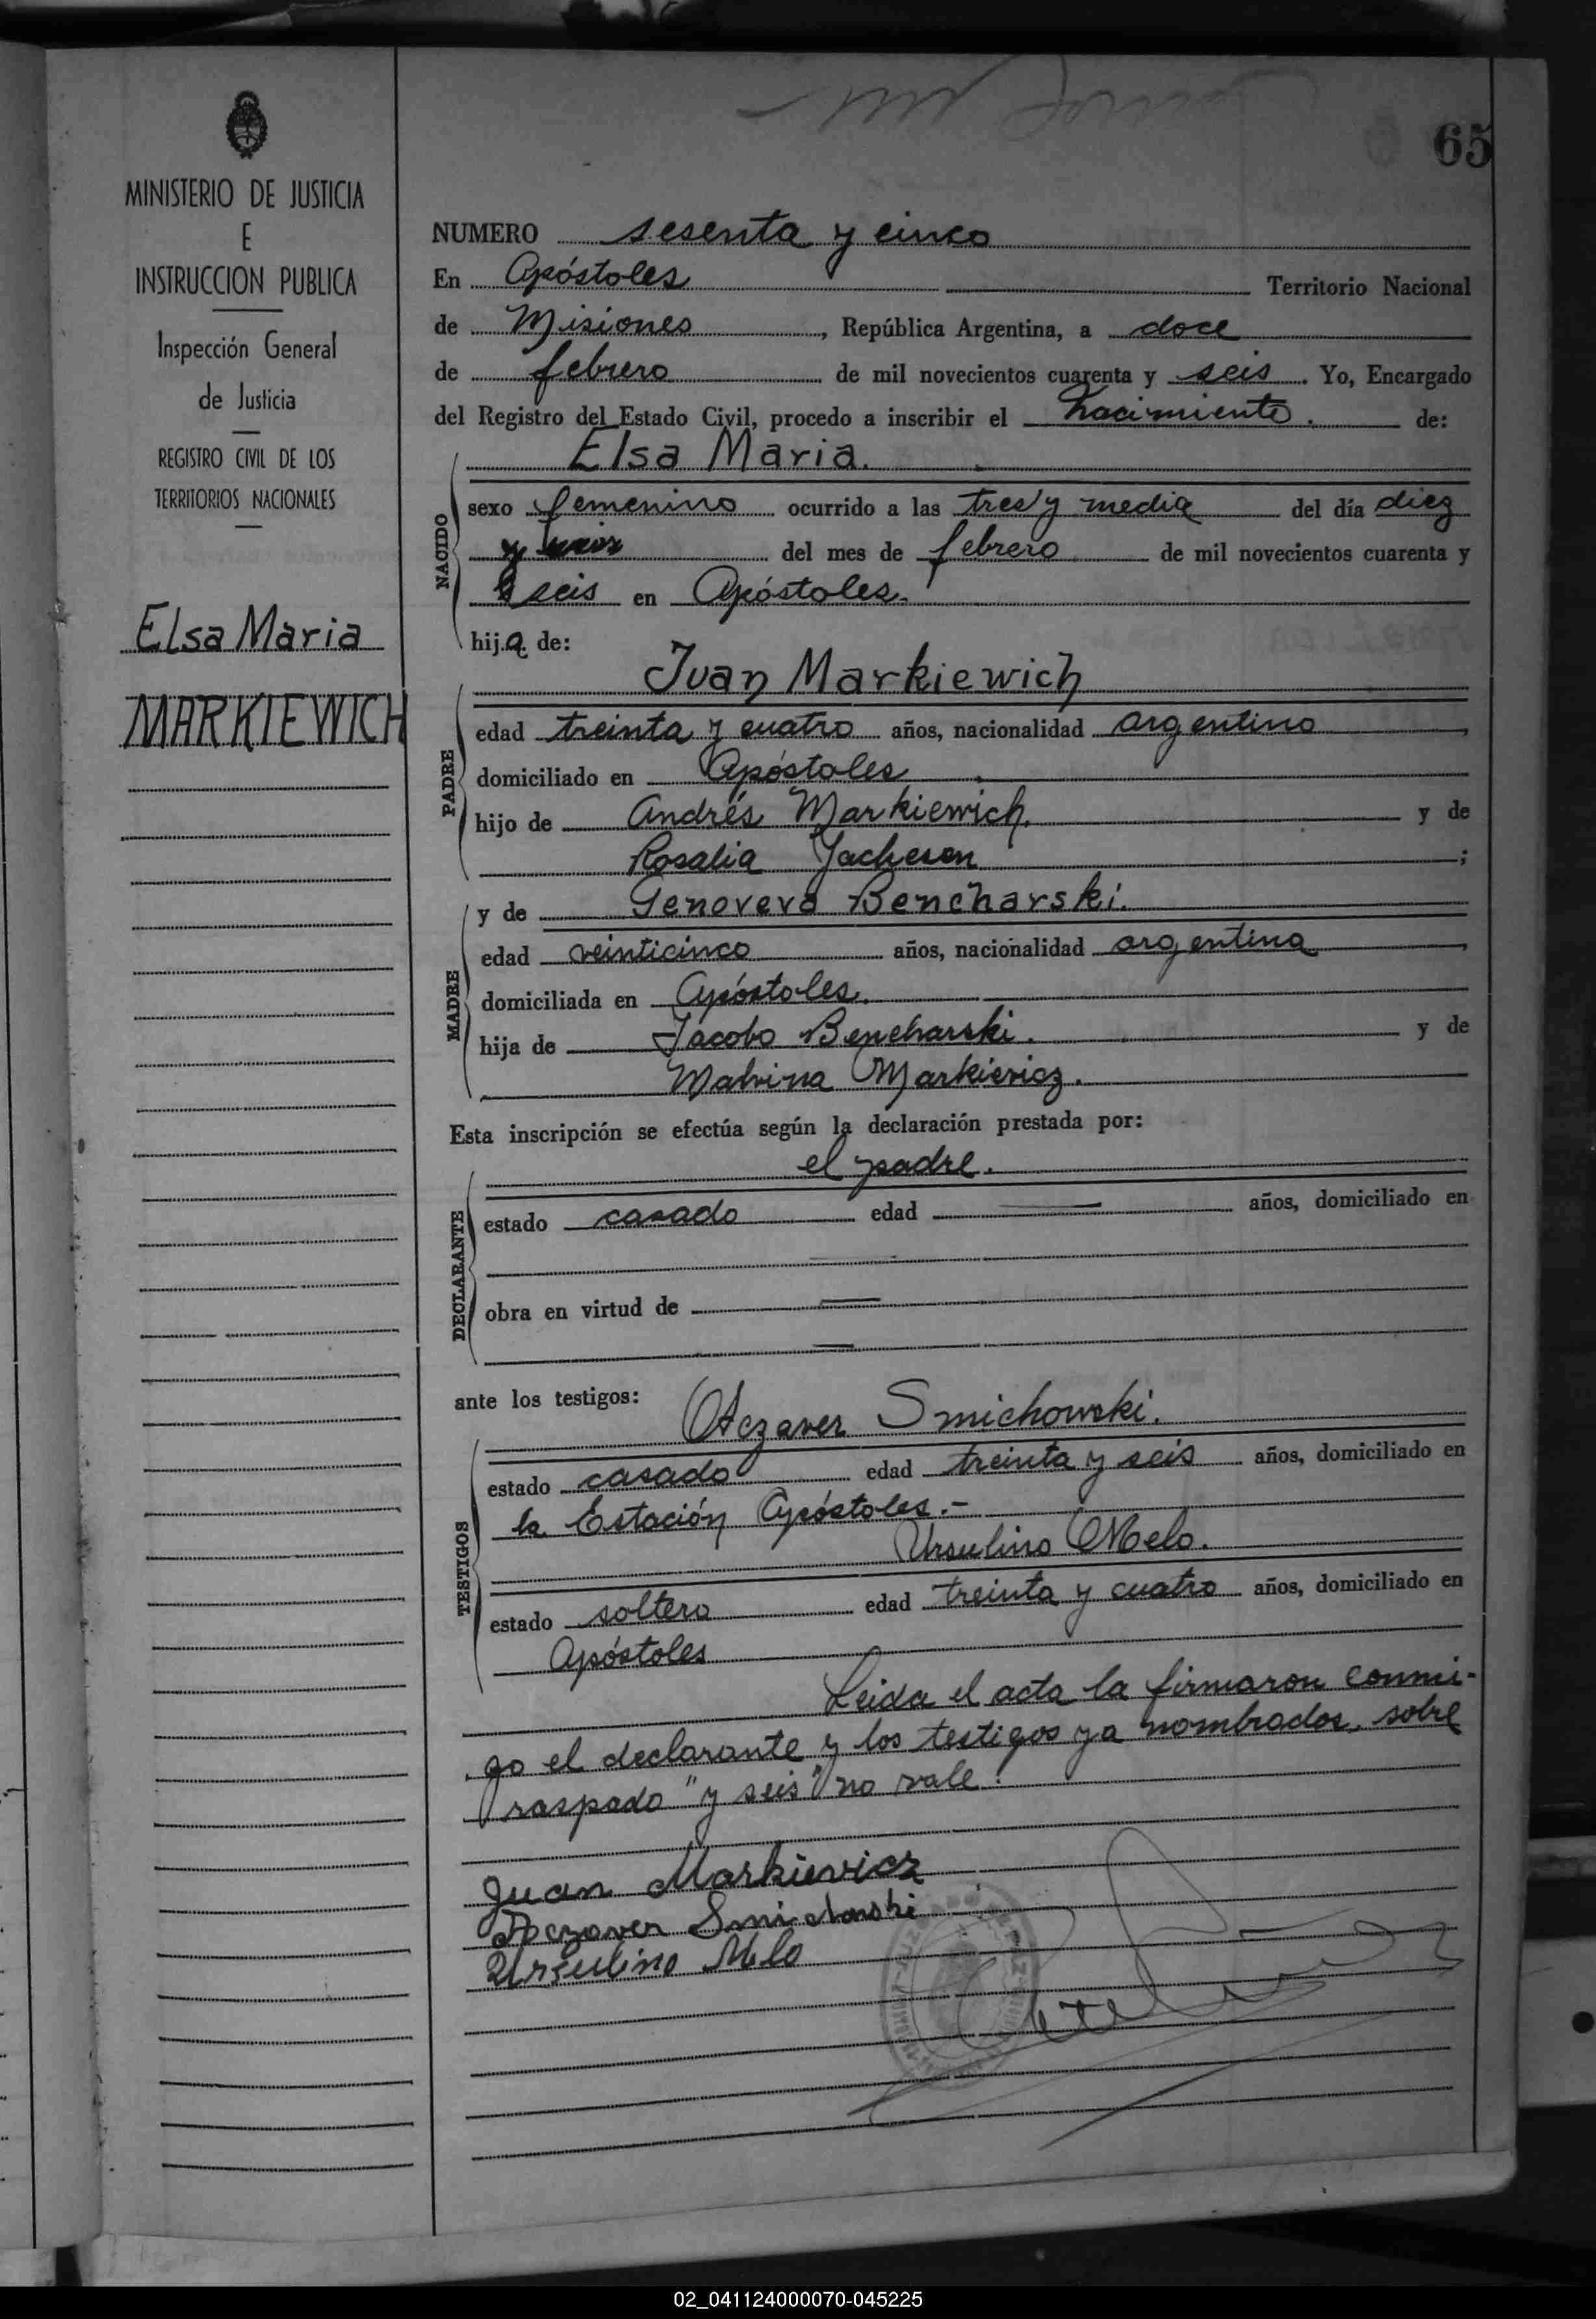 65
MINISTERIO DE JUSTICIA
E
INSTRUCCION PUBLICA
Inspección General
de Justicia
REGISTRO CIVIL DE LOS
TERRITORIOS NACIONALES
Elsa Maria
MARKIEWICH
NUMERO sesenta y cinco
En Apóstoles Territorio Nacional
de Misiones, República Argentina, a doce
de febrero de mil novecientos cuarenta y seis. Yo, Encargado
del Registro del Estado Civil, procedo a inscribir el nacimiento. de:
Elsa Maria.
NACIDO
sexo femenino ocurrido a las tres y media del día diez
y seis del mes de febrero de mil novecientos cuarenta y
seis en Apóstoles.
hija de:
Juan Markiewich
PADRE
edad treinta y cuatro años, nacionalidad argentino,
domiciliado en Apóstoles
hijo de Andrés Markiewich. y de
Rosalia Jacheson;
y de Genoveva Bencharski.
MADRE
edad veinticinco años, nacionalidad argentina,
domiciliada en Apóstoles.
hija de Jacobo Bencharski. y de
Malvina Markievicz.
Esta inscripción se efectúa según la declaración prestada por:
el padre.
DECLARANTE
estado casado edad — años, domiciliado en
—
obra en virtud de —
—
ante los testigos:
Smichowski.
TESTIGOS
estado casado edad treinta y seis años, domiciliado en
la Estación Apóstoles.-
Ursulino Melo.
estado soltero edad treinta y cuatro años, domiciliado en
Apóstoles
Leida el acta la firmaron conmi-
go el declarante y los testigos ya nombrados. sobre
raspado "y seis" no vale.
Juan Markievicz
Smichowski
Ursulino Melo
02_041124000070-045225